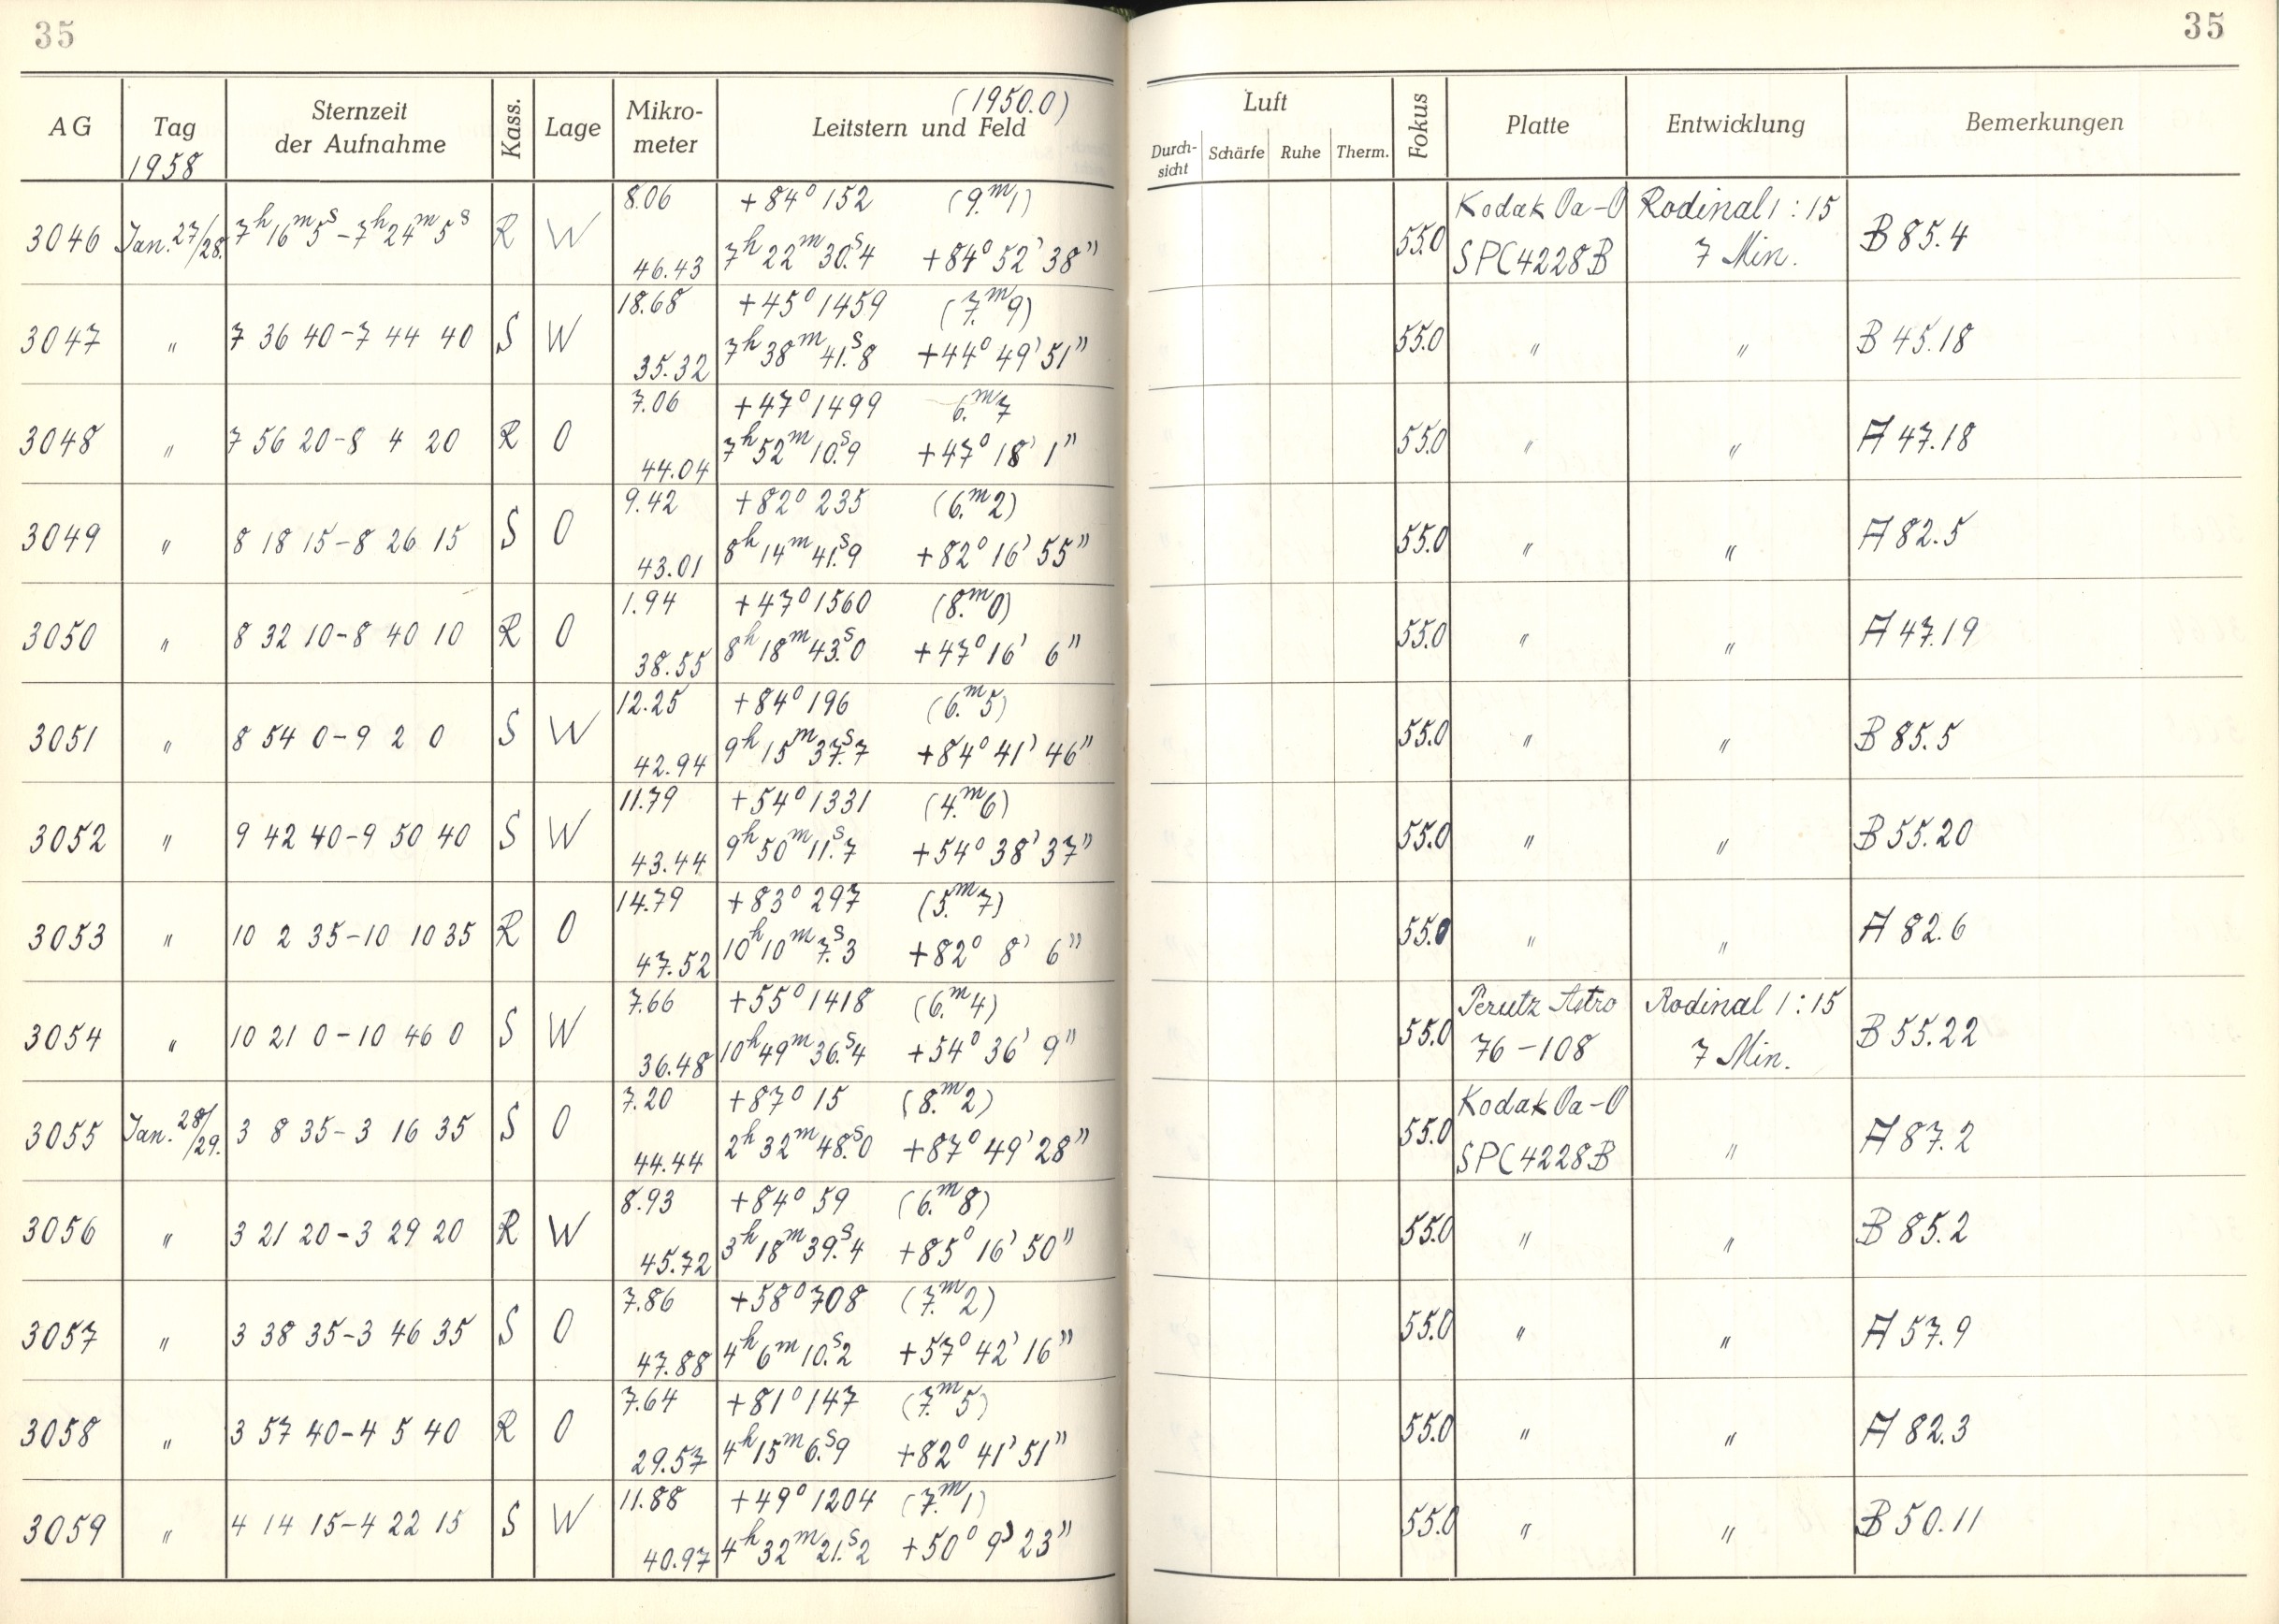 35
35
AG Tag Sternzeit der Aufnahme Kass. Lage Mikro-meter Leitstern und Feld (1950.0) Luft Durch-sicht Schärfe Ruhe Therm. Fokus Platte Entwicklung Bemerkungen
1958
8.06 +84° 152 (9.ᵐ1) Kodak Oa-O Rodinal 1:15
3046 Jan. 27/28. 7ʰ16ᵐ5ˢ-7ʰ24ᵐ5ˢ R W 55.0 B 85.4
46.43 7ʰ 22ᵐ 30.ˢ4 +84° 52' 38" SPC4228B 7 Min.
18.68 +45° 1459 (7.ᵐ9)
3047 " 7 36 40-7 44 40 S W 55.0 " " B 45.18
35.32 7ʰ 38ᵐ 41.ˢ8 +44° 49' 51"
7.06 +47° 1499 6.ᵐ7
3048 " 7 56 20-8 4 20 R O 55.0 " " A 47.18
44.04 7ʰ 52ᵐ 10.ˢ9 +47° 18' 1"
9.42 +82° 235 (6.ᵐ2)
3049 " 8 18 15-8 26 15 S O 55.0 " " A 82.5
43.01 8ʰ 14ᵐ 41.ˢ9 +82° 16' 55"
1.94 +47° 1560 (8.ᵐ0)
3050 " 8 32 10-8 40 10 R O 55.0 " " A 47.19
38.55 8ʰ 18ᵐ 43.ˢ0 +47° 16' 6"
12.25 +84° 196 (6.ᵐ5)
3051 " 8 54 0-9 2 0 S W 55.0 " " B 85.5
42.94 9ʰ 15ᵐ 37.ˢ7 +84° 41' 46"
11.79 +54° 1331 (4.ᵐ6)
3052 " 9 42 40-9 50 40 S W 55.0 " " B 55.20
43.44 9ʰ 50ᵐ 11.ˢ7 +54° 38' 37"
14.79 +83° 297 (5.ᵐ7)
3053 " 10 2 35-10 10 35 R O 55.0 " " A 82.6
47.52 10ʰ 10ᵐ 7.ˢ3 +82° 8' 6"
7.66 +55° 1418 (6.ᵐ4) Perutz Astro Rodinal 1:15
3054 " 10 21 0-10 46 0 S W 55.0 B 55.22
36.48 10ʰ 49ᵐ 36.ˢ4 +54° 36' 9" 76-108 7 Min.
7.20 +87° 15 (8.ᵐ2) Kodak Oa-O
3055 Jan. 28/29. 3 8 35-3 16 35 S O 55.0 " A 87.2
44.44 2ʰ 32ᵐ 48.ˢ0 +87° 49' 28" SPC4228B
8.93 +84° 59 (6.ᵐ8)
3056 " 3 21 20-3 29 20 R W 55.0 " " B 85.2
45.72 3ʰ 18ᵐ 39.ˢ4 +85° 16' 50"
7.86 +58° 708 (7.ᵐ2)
3057 " 3 38 35-3 46 35 S O 55.0 " " A 57.9
47.88 4ʰ 6ᵐ 10.ˢ2 +57° 42' 16"
7.64 +81° 147 (7.ᵐ5)
3058 " 3 57 40-4 5 40 R O 55.0 " " A 82.3
29.57 4ʰ 15ᵐ 6.ˢ9 +82° 41' 51"
11.88 +49° 1204 (7.ᵐ1)
3059 " 4 14 15-4 22 15 S W 55.0 " " B 50.11
40.97 4ʰ 32ᵐ 21.ˢ2 +50° 9' 23"